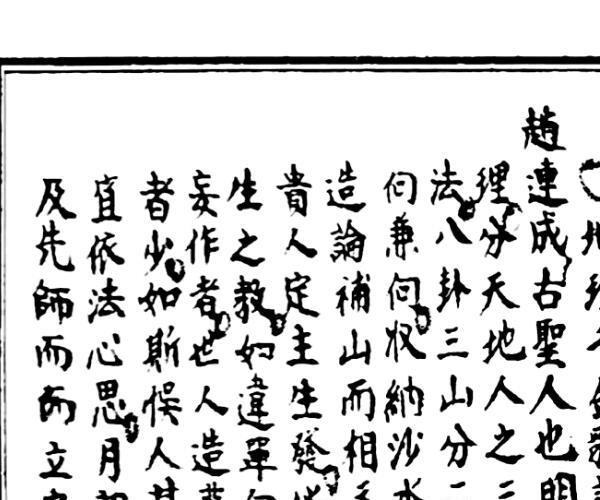 地
趙連成古聖人也明
理分天地人之三
法八卦三山分
向兼向收納沙水
造論補山而相
貴人定主生發
生之教如違單向
妄作者世人造
者少如斯悮人甚
宜依法心思月
及先師而而立